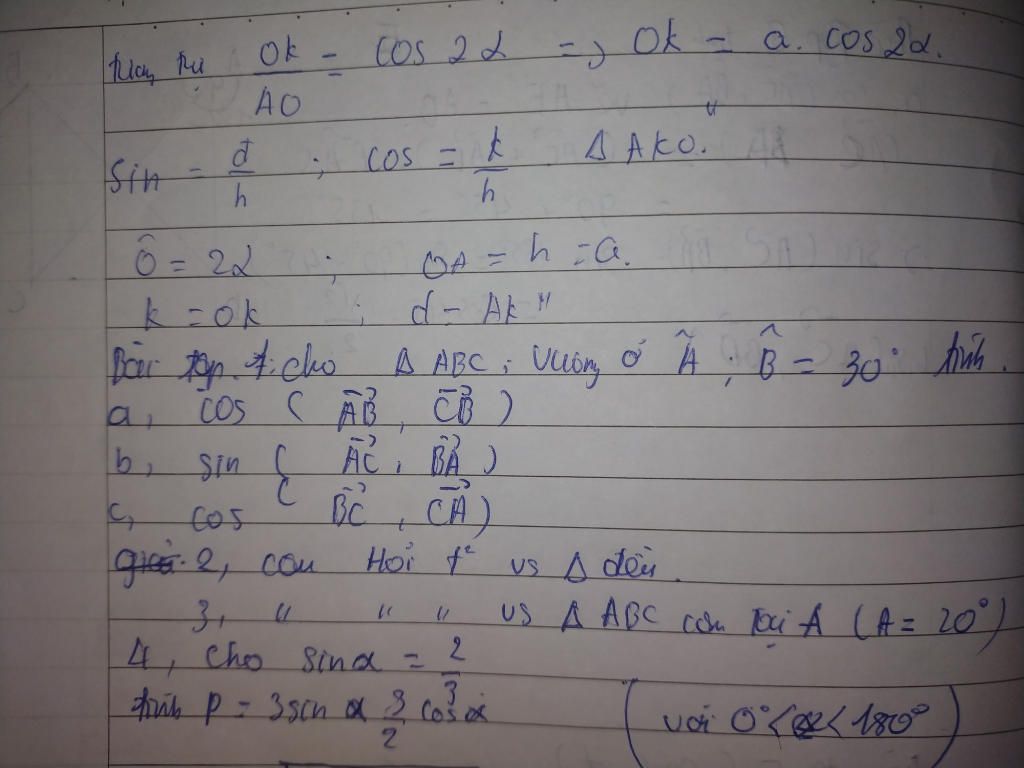 OK/AO = cos 2α => OK = a. cos 2α.
sin = đ/h ; cos = k/h Δ AKO.
Ô = 2α ; OA = h = a.
k = OK ; đ = AK"
Bài tập 1: cho Δ ABC ; vuông ở Â ; B̂ = 30° tính.
a, cos ( AB , CB )
b, sin ( AC , BA )
c, cos ( BC , CA )
2, câu Hỏi t² vs Δ đều.
3, " " " vs Δ ABC cân tại A (A = 20°)
4, cho sin α = 2/3
tính P = 3 sin α 3/2 cos α (với 0° < α < 180°)